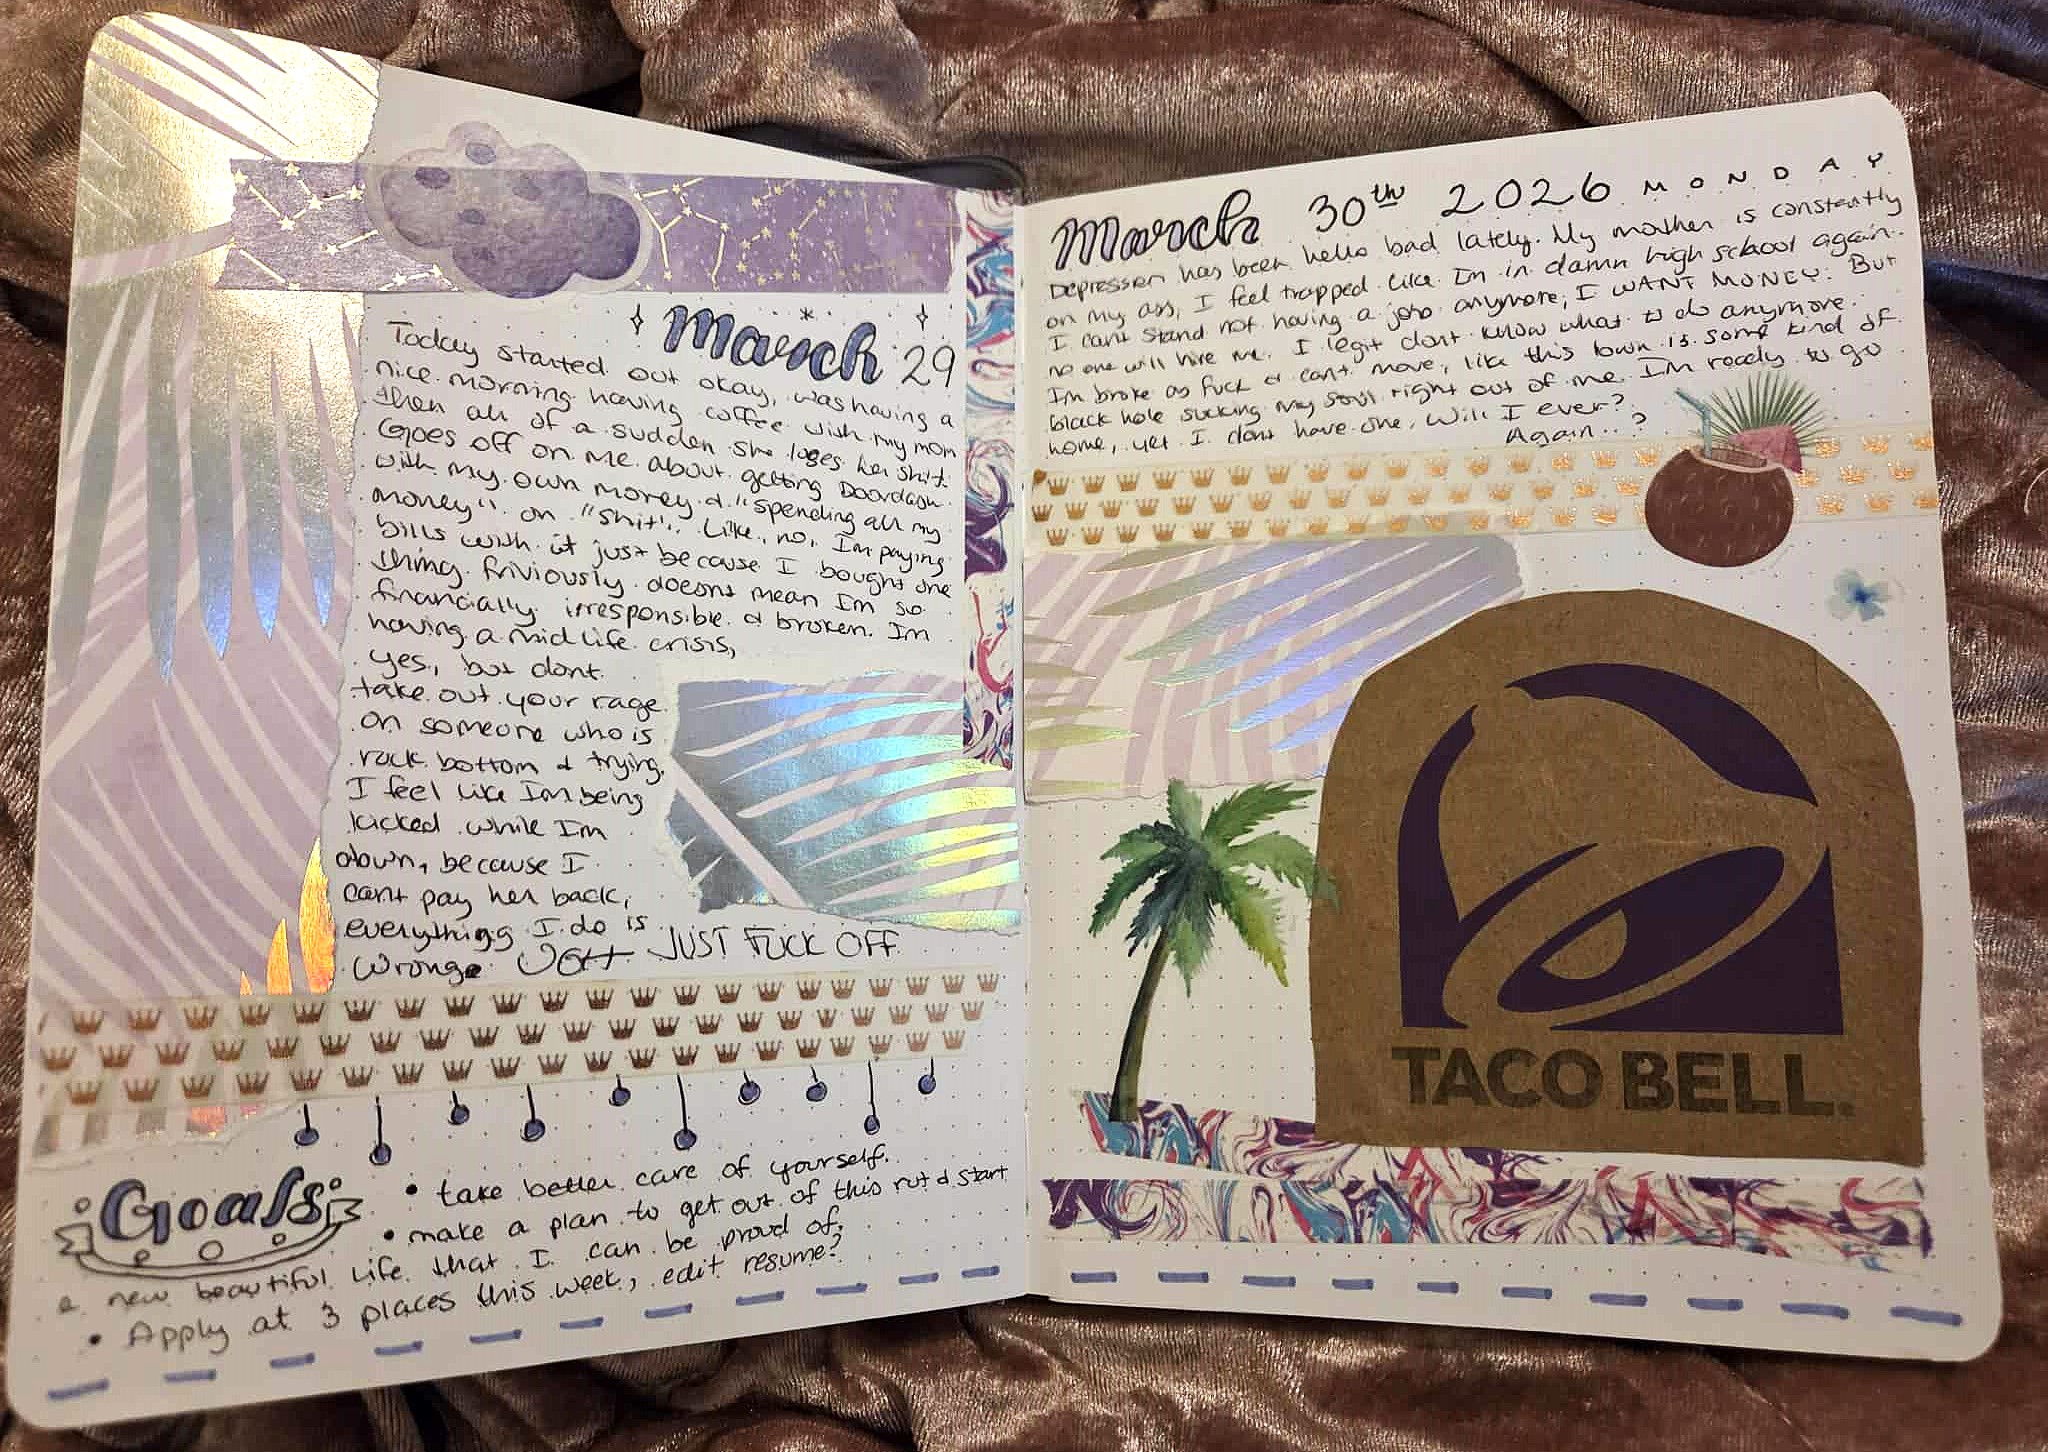 March 29
Today started out okay, was having a
nice morning having coffee with my mom
then all of a sudden she loses her shit.
Goes off on me about getting Doordash
with my own money & "spending all my
money" on "shit". Like, no, Im paying
bills with it just because I bought one
thing friviously doesnt mean Im so
financially irresponsible & broken. Im
having a mid life crisis,
yes, but dont
take out your rage
on someone who is
rock bottom & trying.
I feel like Im being
kicked while Im
down, because I
cant pay her back,
everything I do is
wrong. JUST FUCK OFF.
Goals
• take better care of yourself.
• make a plan to get out of this rut & start
a new beautiful life that I can be proud of.
• Apply at 3 places this week, edit resume?
March 30th 2026 MONDAY
Depression has been hella bad lately. My mother is constantly
on my ass, I feel trapped like Im in damn high school again.
I cant stand not having a job anymore, I WANT MONEY. But
no one will hire me. I legit dont know what to do anymore.
Im broke as fuck & cant move, like this town is some kind of
black hole sucking my soul right out of me. Im ready to go
home, yet I dont have one, will I ever?
Again..?
TACO BELL.